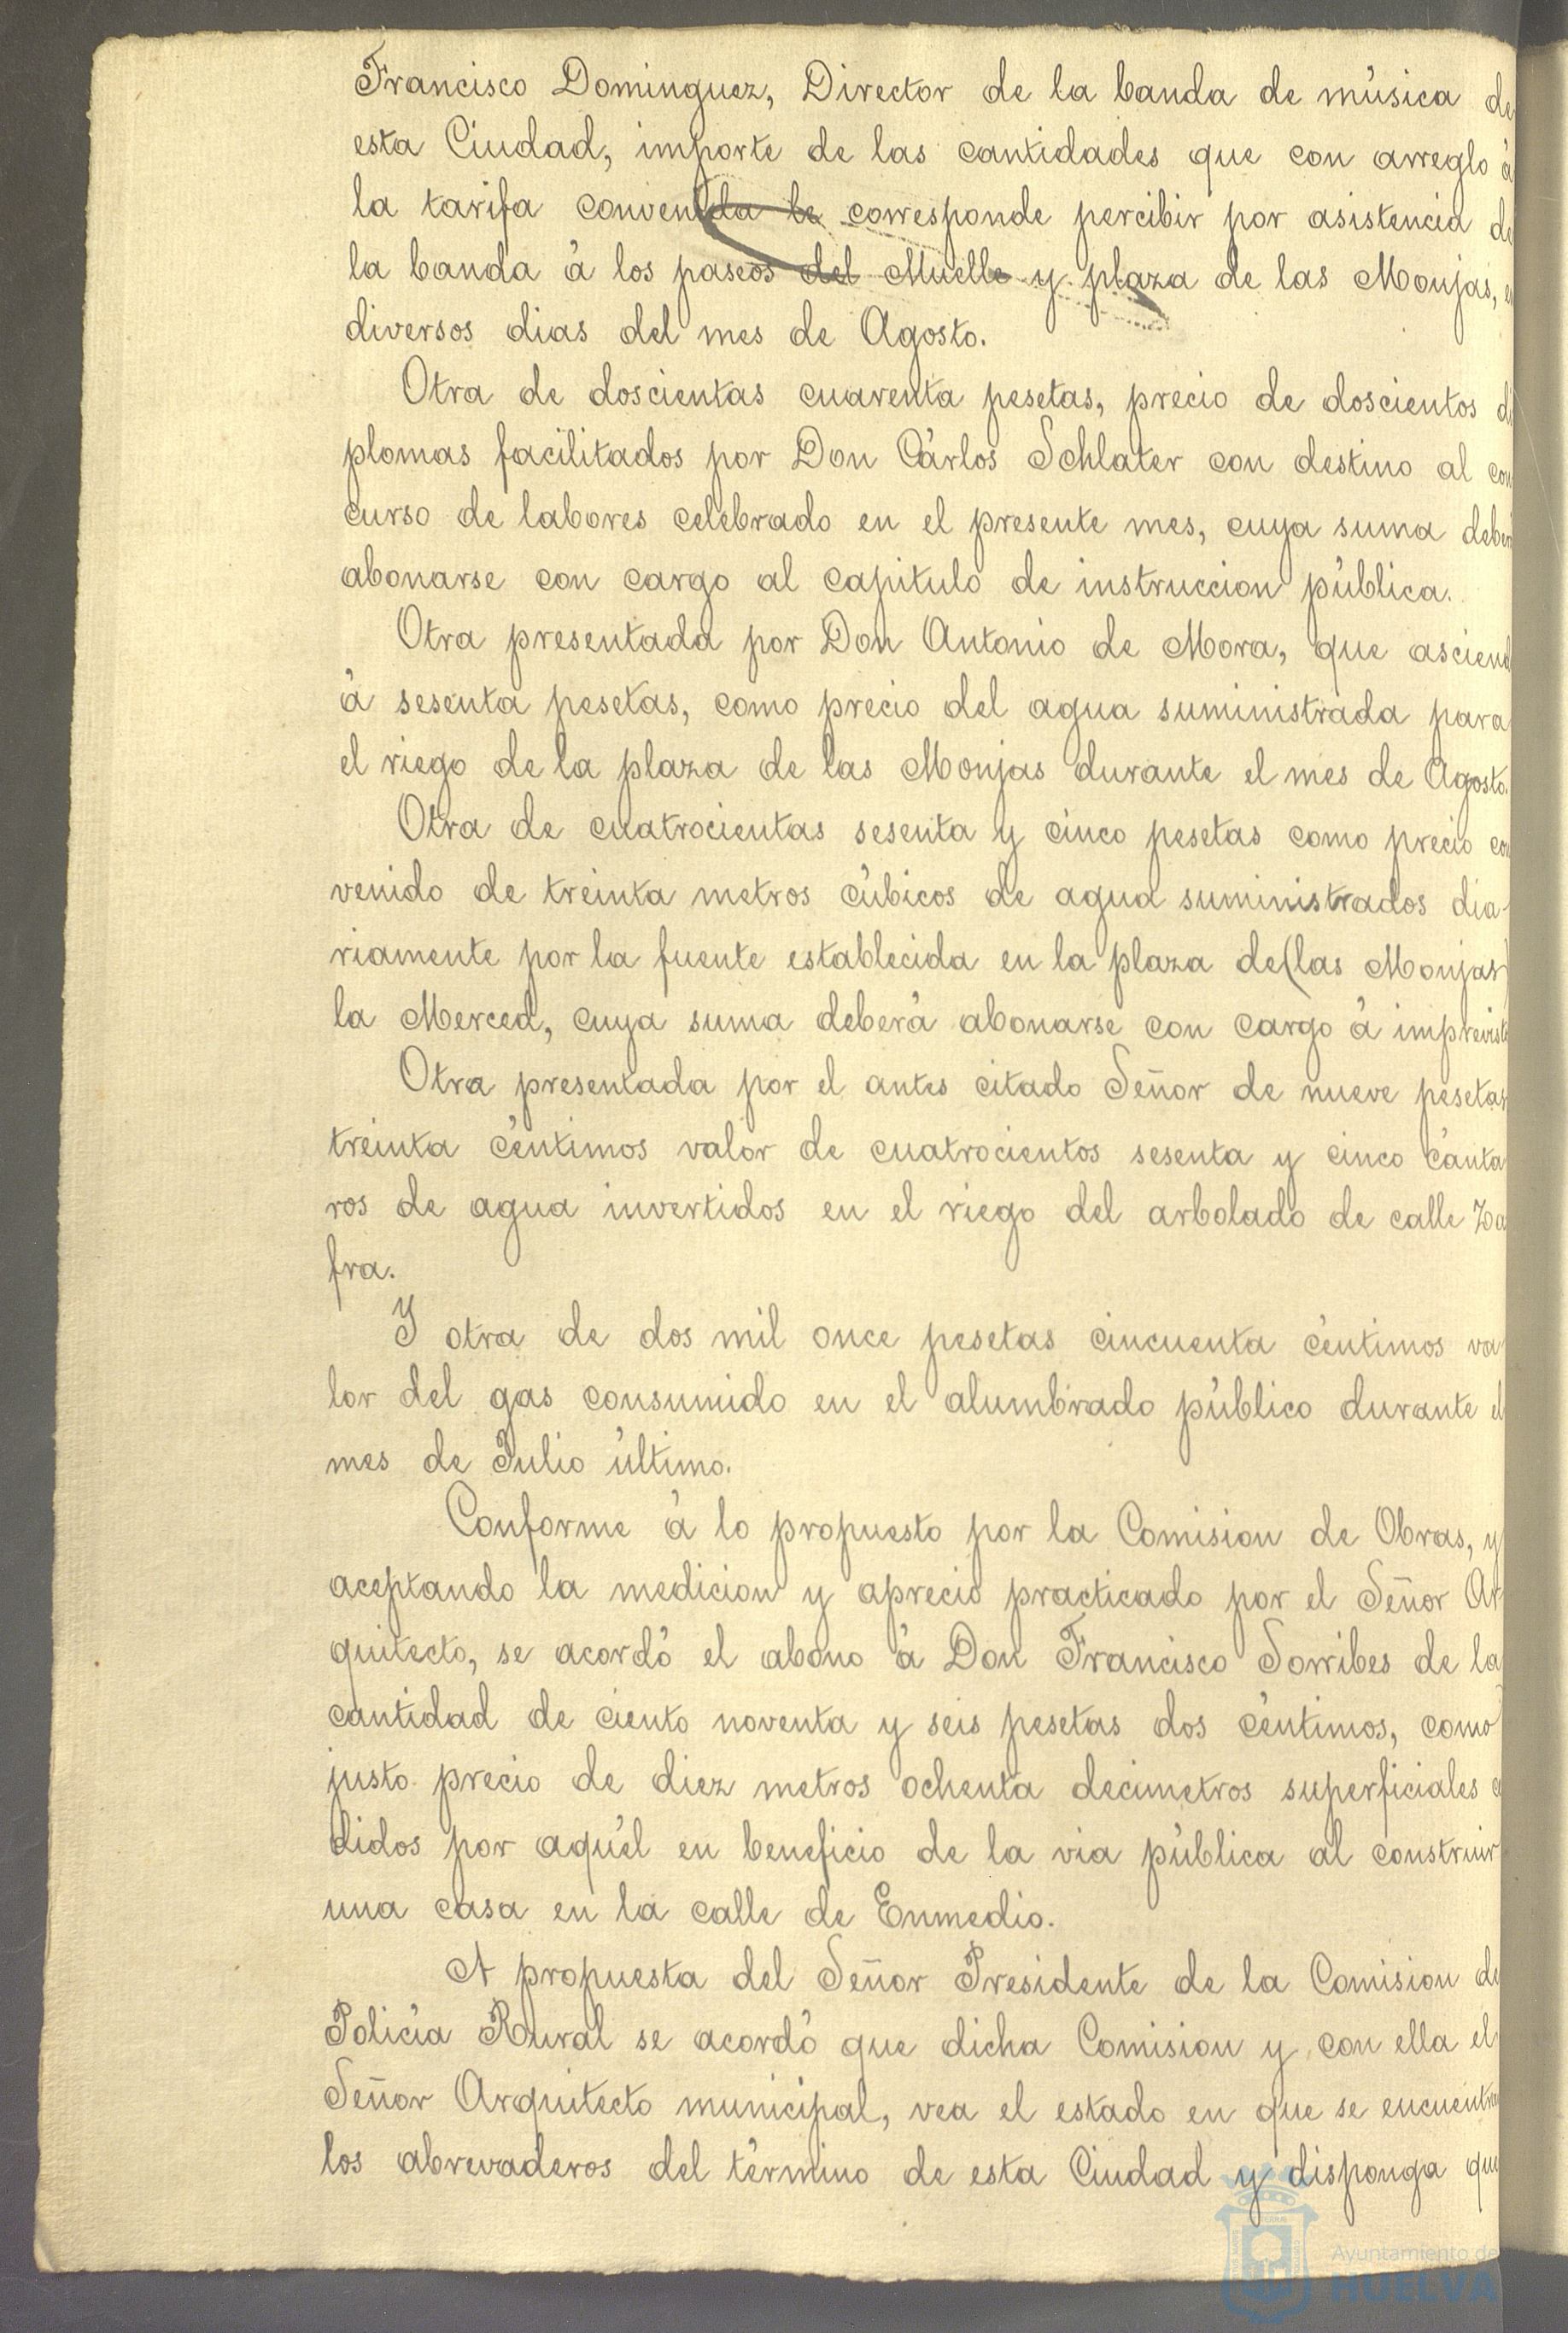 Francisco Dominguez, Director de la banda de música de
esta Ciudad, importe de las cantidades que con arreglo á
la tarifa convenida le corresponde percibir por asistencia de
la banda á los paseos del Muelle y plaza de las Monjas, en
diversos dias del mes de Agosto.
Otra de doscientas cuarenta pesetas, precio de doscientos di
plomas facilitados por Don Cárlos Schlater con destino al con
curso de labores celebrado en el presente mes, cuya suma deberá
abonarse con cargo al capitulo de instruccion pública.
Otra presentada por Don Antonio de Mora, que asciend
á sesenta pesetas, como precio del agua suministrada para
el riego de la plaza de las Monjas durante el mes de Agosto.
Otra de cuatrocientas sesenta y cinco pesetas como precio con
venido de treinta metros cúbicos de agua suministrados dia-
riamente por la fuente establecida en la plaza de (las Monjas)
la Merced, cuya suma deberá abonarse con cargo á imprevist
Otra presentada por el antes citado Señor de nueve pesetas
treinta céntimos valor de cuatrocientos sesenta y cinco cánta
ros de agua invertidos en el riego del arbolado de calle Za
fra.
Y otra de dos mil once pesetas cincuenta céntimos va
lor del gas consumido en el alumbrado público durante el
mes de Julio último.
Conforme á lo propuesto por la Comision de Obras, y
aceptando la medicion y aprecio practicado por el Señor Ar
quitecto, se acordó el abono á Don Francisco Sorribes de la
cantidad de ciento noventa y seis pesetas dos céntimos, como
justo precio de diez metros ochenta decimetros superficiales ce
didos por aquél en beneficio de la via pública al construir
una casa en la calle de Enmedio.
A propuesta del Señor Presidente de la Comision de
Policía Rural se acordó que dicha Comision y con ella el
Señor Arquitecto municipal, vea el estado en que se encuentra
los abrevaderos del término de esta Ciudad y disponga que
Ayuntamiento de
HUELVA